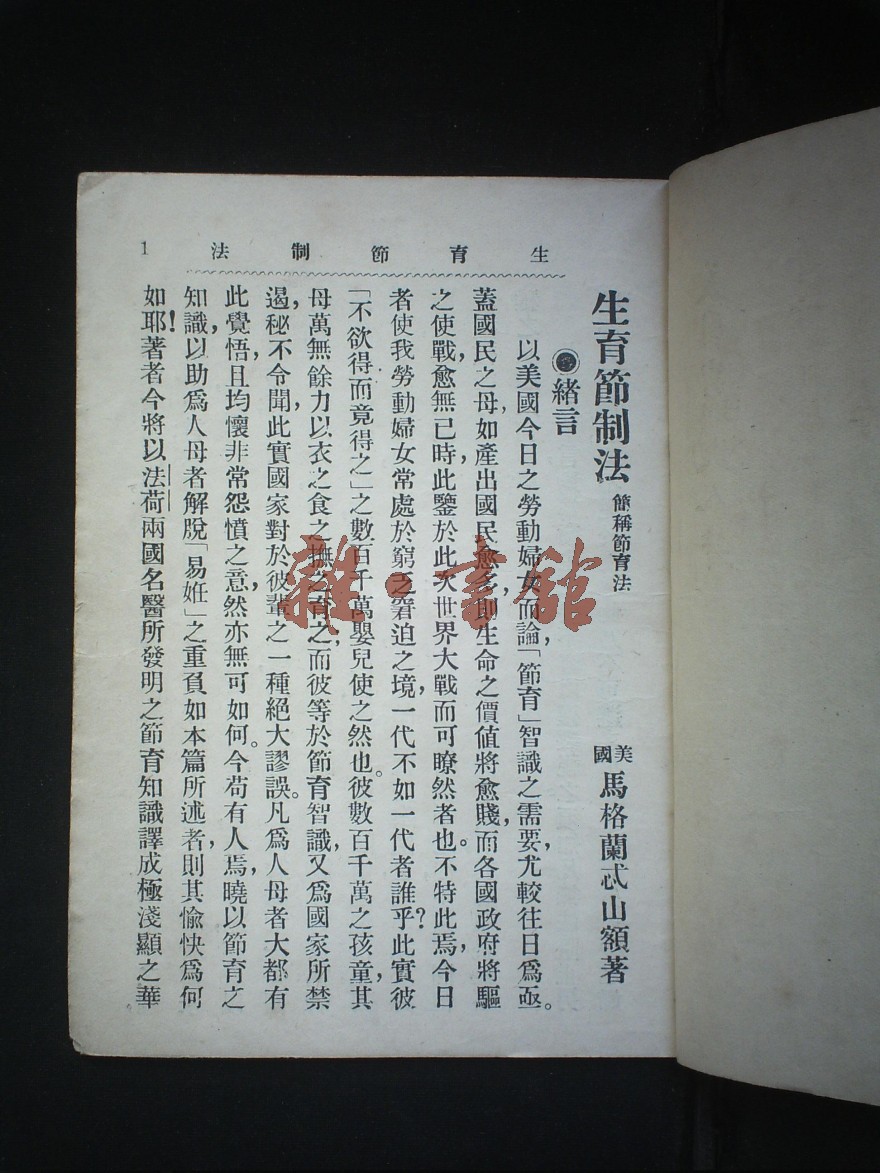 生育節制法 1
生育節制法 簡稱節育法 美國 馬格蘭忒山額著
緒言
以美國今日之勞動婦女而論,「節育」智識之需要,尤較往日爲亟。
蓋國民之母,如產出國民愈多,則生命之價值將愈賤,而各國政府將驅
之使戰,愈無已時,此鑒於此次世界大戰而可瞭然者也。不特此焉,今日
者使我勞動婦女常處於窮乏窘迫之境,一代不如一代者誰乎?此實彼
「不欲得而竟得之」之數百千萬嬰兒使之然也。彼數百千萬之孩童,其
母萬無餘力以衣之食之撫之育之,而彼等於節育智識,又爲國家所禁
遏,秘不令聞,此實國家對於彼輩之一種絕大謬誤。凡爲人母者大都有
此覺悟,且均懷非常怨憤之意,然亦無可如何。今苟有人焉,曉以節育之
知識,以助爲人母者解脫「易姙」之重負,如本篇所述者,則其愉快爲何
如耶!著者今將以法荷兩國名醫所發明之節育知識,譯成極淺顯之華
雜·書舘